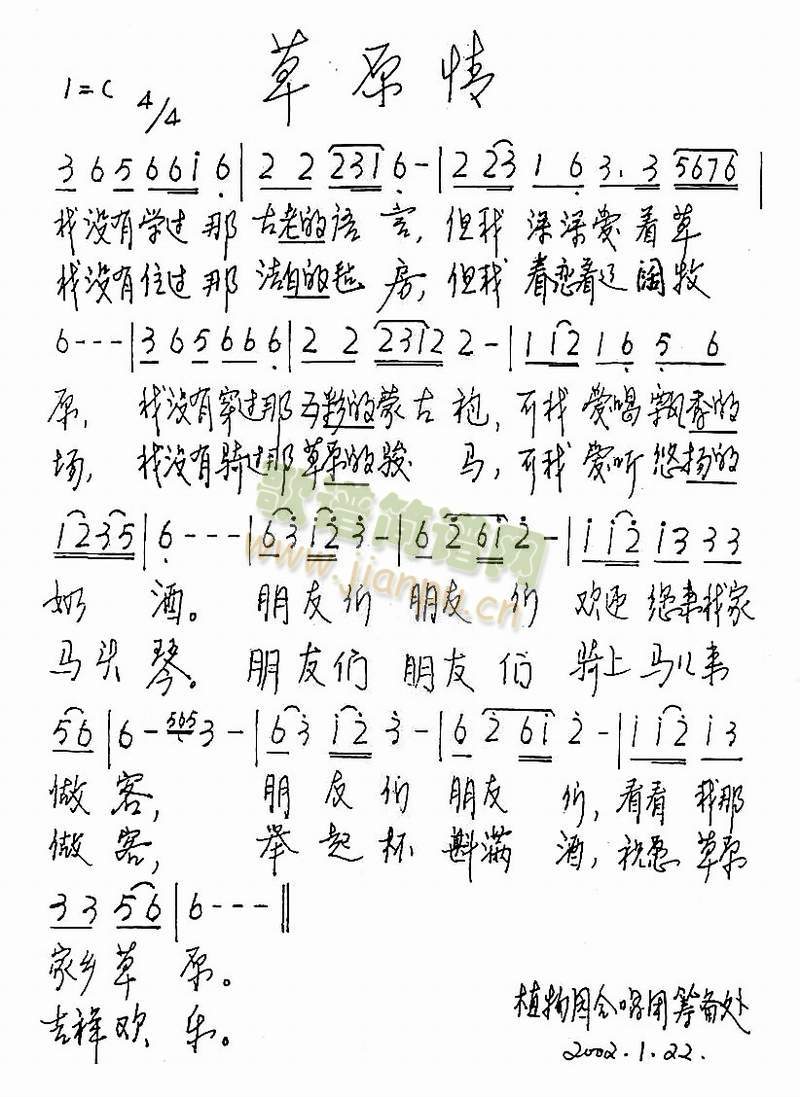 草原情
1=C 4/4
3 6 5 6 6 i 6 | 2 2 2 3 1 6 - | 2 2 3 1 6 3. 3 5 6 7 6 |
我没有学过那古老的语言,但我深深爱着草
我没有住过那洁白的毡房,但我眷恋着辽阔牧
6 - - - | 3 6 5 6 6 6 | 2 2 2 3 1 2 2 - | 1 1 2 1 6 5 6
原,我没有穿过那五彩的蒙古袍,可我爱喝飘香的
场,我没有骑过那草原的骏马,可我爱听悠扬的
1 2 3 5 | 6 - - - | 6 3 i 2 3 - | 6 2 6 i 2 - | i i 2 i 3 3 3
歌谱简谱网
www.jianpu.cn
奶酒。朋友们朋友们欢迎您来我家
马头琴。朋友们朋友们骑上马儿来
5 6 | 6 - 5 6 5 3 - | 6 3 i 2 3 - | 6 2 6 i 2 - | i i 2 i 3
做客,朋友们朋友们,看看我那
做客,举起杯斟满酒,祝愿草原
3 3 5 6 | 6 - - - ||
家乡草原。
吉祥欢乐。
植物园合唱团筹备处
2002.1.22.